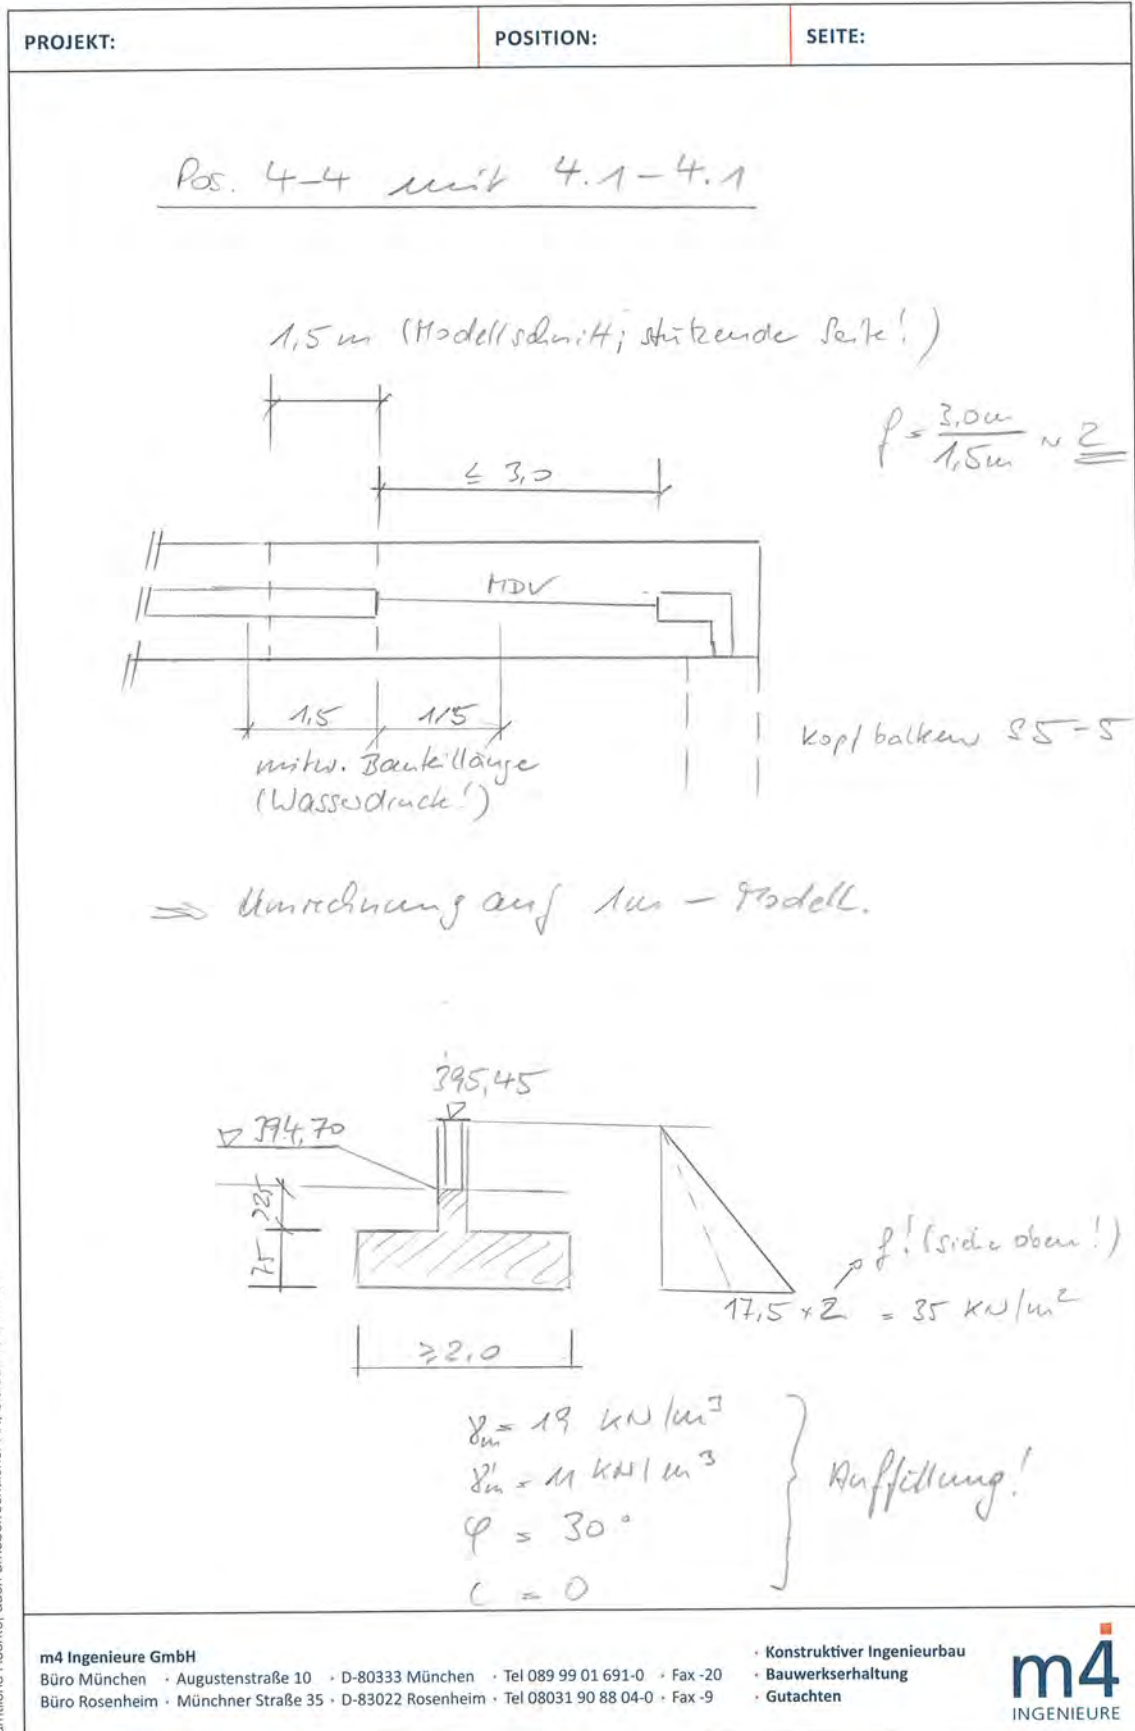 PROJEKT: POSITION: SEITE:
Pos. 4-4 mit 4.1-4.1
1,5 m (Modellschnitt; stützende Seite!)
f = 3,0m / 1,5m ~ 2
≤ 3,0
MDV
1,5 1,5
mitw. Bauteillänge
(Wasserdruck!)
Kopfbalken S 5-5
=> Umrechnung auf 1m - Modell.
395,45
▽ 394,70
75
f! (siehe oben!)
17,5 x 2 = 35 KN/m²
≥ 2,0
γm = 19 KN/m³
γ'm = 11 KN/m³
φ = 30°
c = 0
Auffüllung!
m4 Ingenieure GmbH
Büro München · Augustenstraße 10 · D-80333 München · Tel 089 99 01 691-0 · Fax -20
Büro Rosenheim · Münchner Straße 35 · D-83022 Rosenheim · Tel 08031 90 88 04-0 · Fax -9
· Konstruktiver Ingenieurbau
· Bauwerkserhaltung
· Gutachten
m4
INGENIEURE